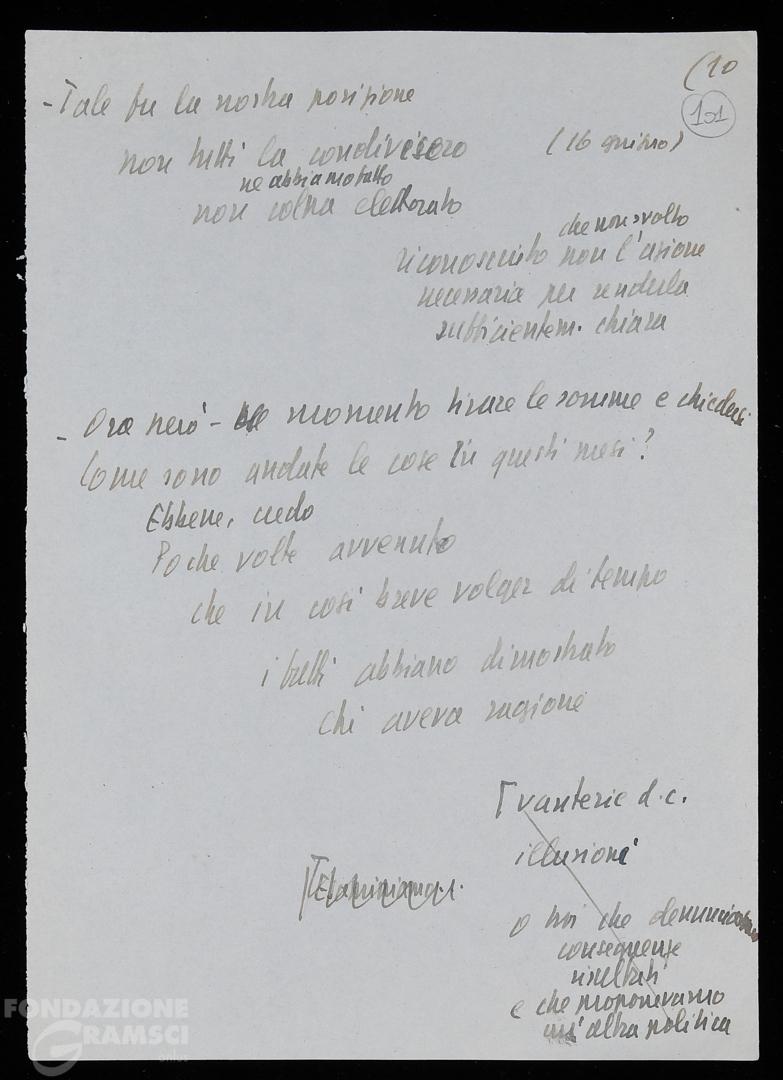 (10
101
- Tale fu la nostra posizione
non tutti la condivisero (16 giugno)
ne abbiamo fatto
non colpa elettorato
che non svolto
riconosciuto non l'azione
necessaria per renderla
sufficientem. chiara
- Ora però - momento tirare le somme e chiedersi
Come sono andate le cose in questi mesi?
Ebbene, credo
Poche volte avvenuto
che in così breve volger di tempo
i fatti abbiano dimostrato
chi aveva ragione
vanterie d.c.
illusioni
Esaminiamoli
o noi che denunciavamo
conseguenze
risultati
e che proponevamo
un'altra politica
FONDAZIONE
GRAMSCI
onlus